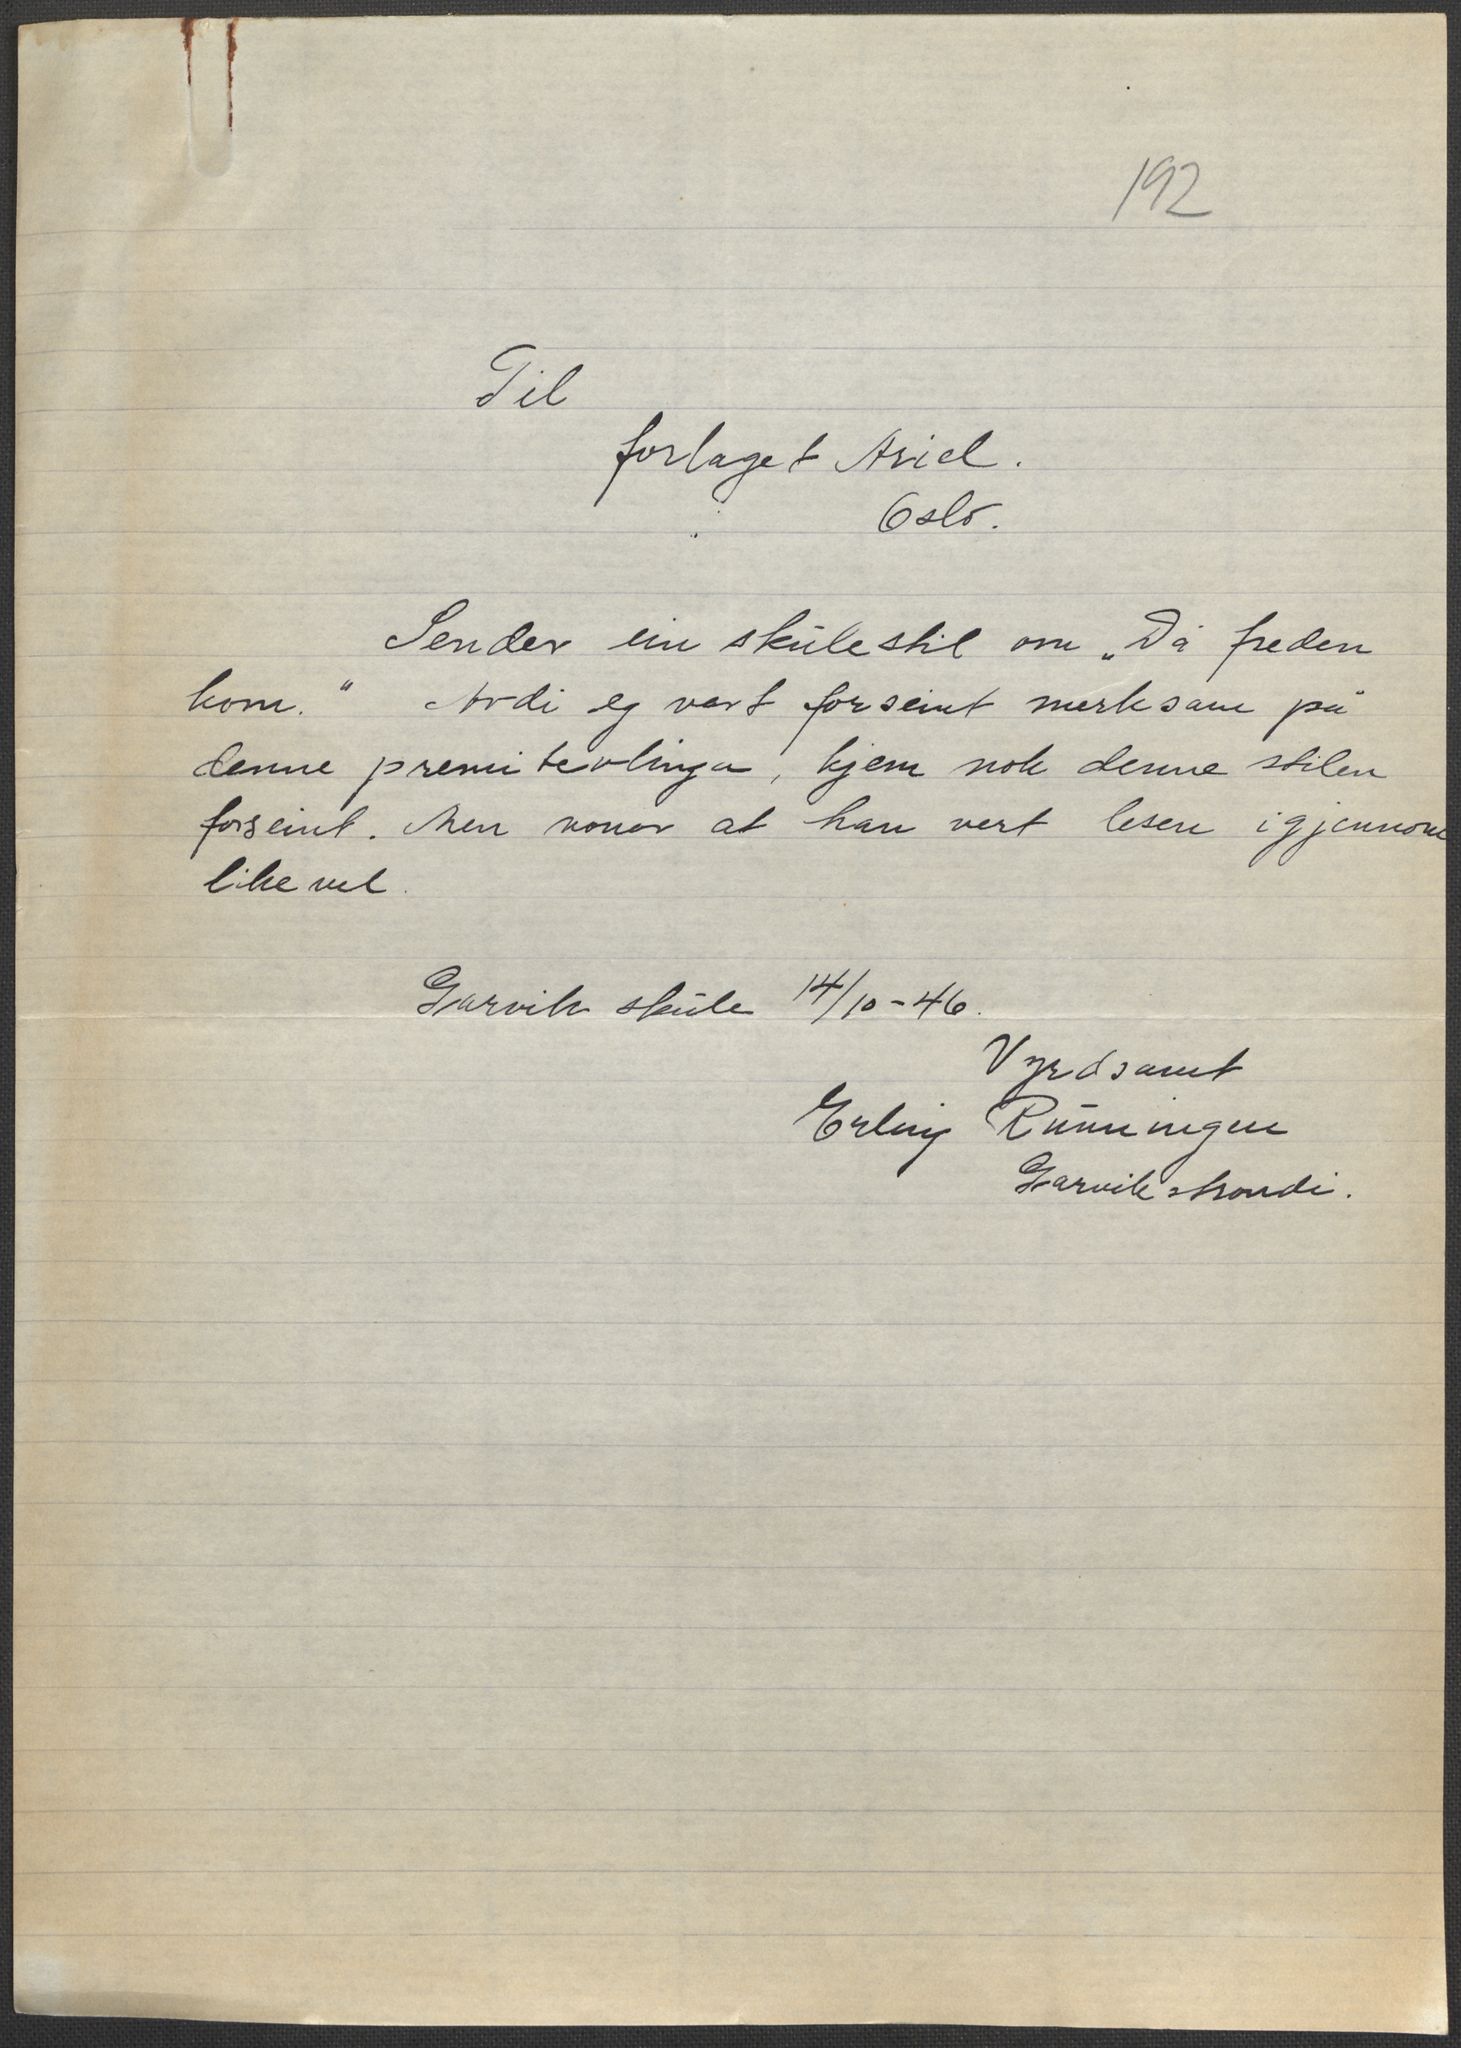 192
Til
forlaget Ariel.
Oslo.
Sender ein skúlestil om „Då freden
kom.“ Avdi eg vart forseint merksam på
denne premitevlinga, kjem nok denne stilen
forseint. Men vonar at han vert lesen igjennom
likevel.
Garvik skúle 14/10-46.
Vyrdsamt
Erling Rúnningen
Garvikstrondi.